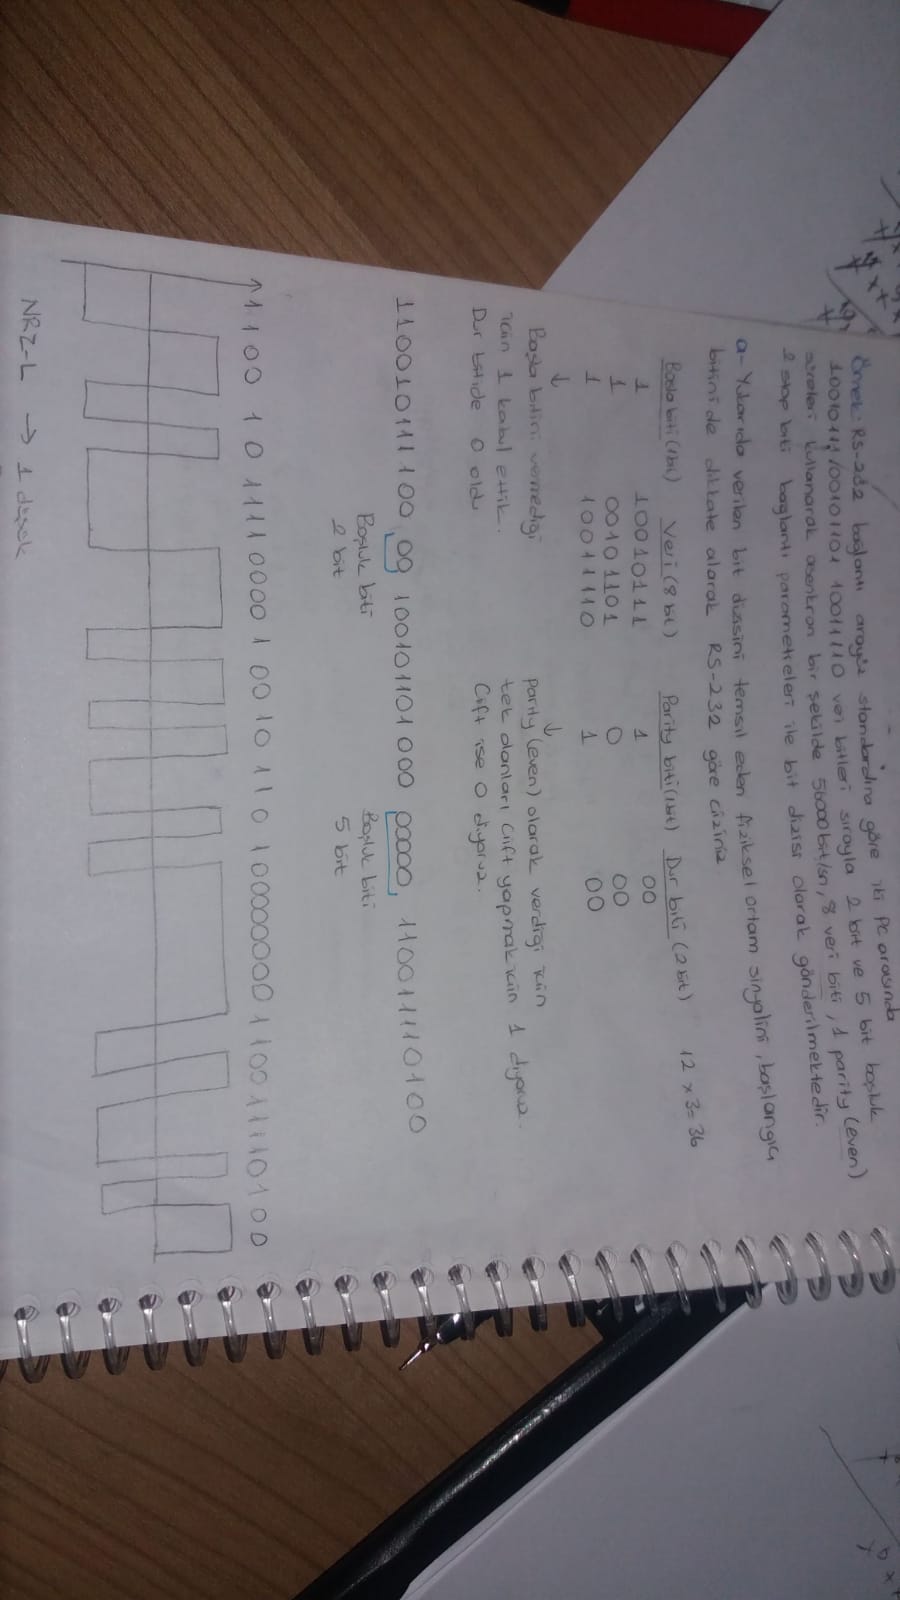 Örnek: RS-232 bağlantı arayüz standardına göre iki PC arasında
10010111/00101101 10011110 veri bitleri sırayla 2 bit ve 5 bit boşluk
süreleri kullanarak asenkron bir şekilde 56000bit/sn, 8 veri biti, 1 parity (even)
2 stop biti bağlantı parametreleri ile bit dizisi olarak gönderilmektedir.
a- Yukarıda verilen bit dizisini temsil eden fiziksel ortam sinyalini, başlangıç
bitini de dikkate alarak RS-232 göre çiziniz
Başla biti (1bit) Veri (8 bit) Parity biti (1bit) Dur biti (2 bit) 12 x 3= 36
1 10010111 1 00
1 00101101 0 00
1 10011110 1 00
↓ ↓
Başla bitini vermediği Parity (even) olarak verdiği için
için 1 kabul ettik. tek olanları çift yapmak için 1 diyoruz.
Dur bitide 0 oldu Çift ise 0 diyoruz.
110010111100 00 100101101000 00000 110011110100
Boşluk biti Boşluk biti
2 bit 5 bit
1100 1 0 11110000 1 00 10 11 0 1 00000000 110011110100
NRZ-L → 1 düşük